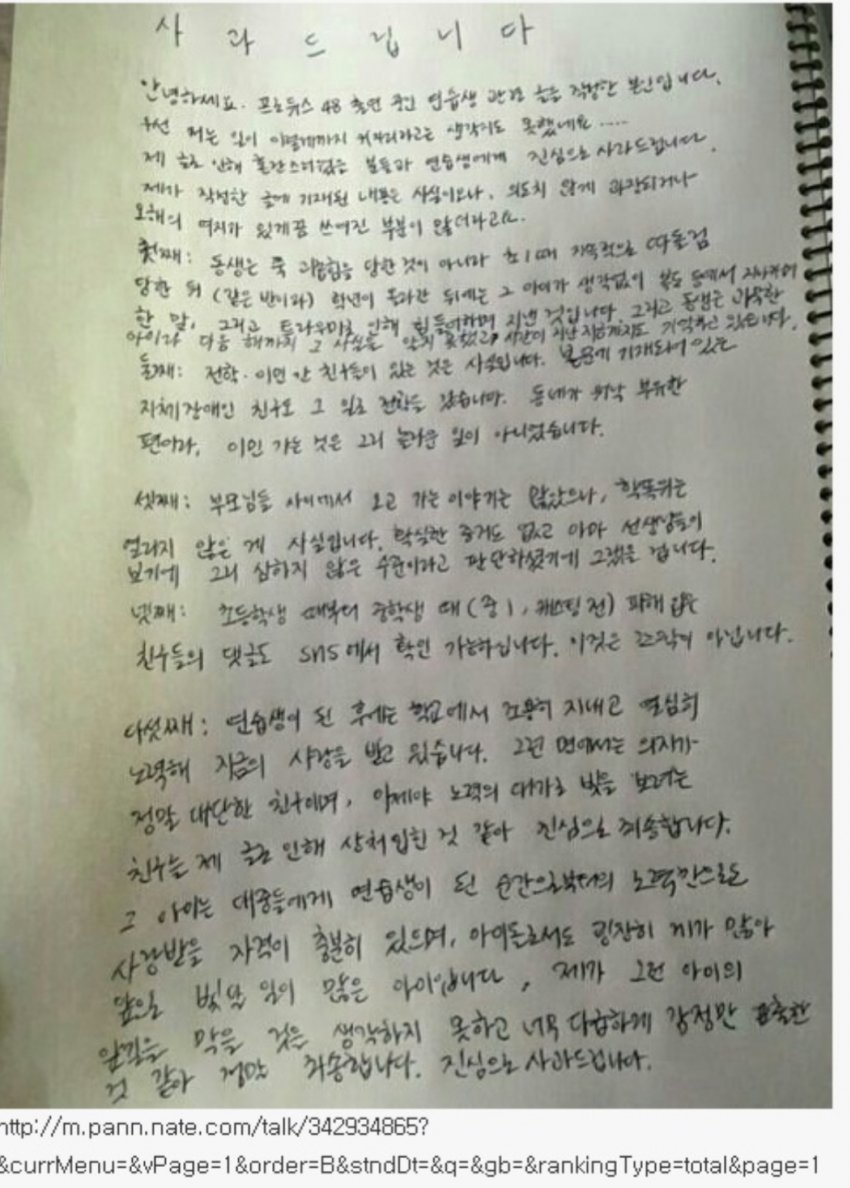 사과드립니다
안녕하세요. 프로듀스 48 출연 중인 연습생 관련 글을 작성한 본인입니다.
우선 저는 일이 이렇게까지 커지리라고는 생각지도 못했네요.....
제 글로 인해 혼란스러웠을 분들과 연습생에게 진심으로 사과드립니다.
제가 작성한 글에 기재된 내용은 사실이오나, 의도치 않게 과장되거나
오해의 여지가 있게끔 쓰여진 부분이 않더라고요.
첫째: 동생는 쭉 괴롭힘을 당한 것이 아니라 초1때 지속적으로 따돌림
당한 뒤 (같은 반이라) 학년이 올라간 뒤에는 그 아이가 생각없이 복도 등에서 지나가며
한 말, 그리고 트라우마로 인해 힘들어하며 지낸 것입니다. 그리고 동생는
아이라 다음 해까지 그 사실을 잊지 못했고, 시간이 지난 지금까지도 기억하고 있습니다.
둘째: 전학·이민 간 친구들이 있는 것은 사실입니다. 본문에 기재되어 있는
지체장애인 친구도 그 일로 전학을 갔습니다. 동네가 워낙 부유한
편이라, 이민 가는 것은 그리 놀라운 일이 아니었습니다.
셋째: 부모님들 사이에서 오고 가는 이야기는 많았으나, 학폭위는
열리지 않은 게 사실입니다. 확실한 증거도 없고 아마 선생님들이
보기에 그리 심하지 않은 수준이라고 판단하셨기에 그랬을 겁니다.
넷째: 초등학생 때부터 중학생 때(중1, 캐스팅 전) 피해 입은
친구들의 댓글도 SNS에서 확인 가능하십니다. 이것은 조작이 아닙니다.
다섯째: 연습생이 된 후에는 학교에서 조용히 지내고 열심히
노력해 지금의 사랑을 받고 있습니다. 그런 면에서는 의지가
정말 대단한 친구이며, 이제야 노력의 대가로 빛을 보려는
친구는 제 글로 인해 상처입힌 것 같아 진심으로 죄송합니다.
그 아이는 대중들에게 연습생이 된 순간으로부터의 노력만으로도
사랑받을 자격이 충분히 있으며, 아이돌로서도 굉장히 끼가 많아
앞으로 빛날 일이 많은 아이입니다, 제가 그런 아이의
앞길을 막을 것은 생각하지 못하고 너무 다급하게 감정만 표출한
것 같아 정말 죄송합니다. 진심으로 사과드립니다.
http://m.pann.nate.com/talk/342934865?
&currMenu=&vPage=1&order=B&stndDt=&q=&gb=&rankingType=total&page=1